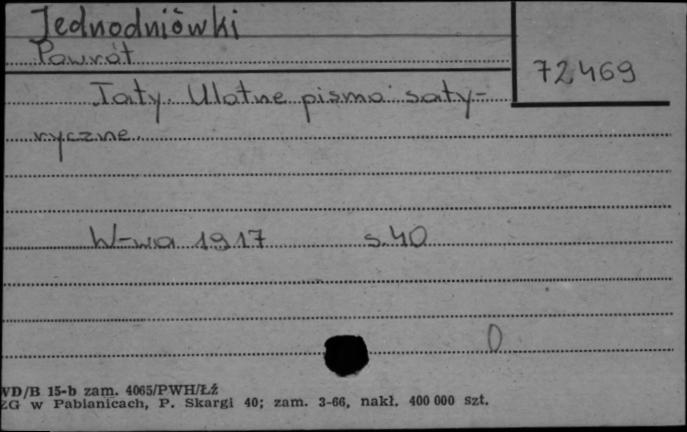 Jednodniówki
Powrót
72469
Taty. Ulotne pismo saty-
ryczne.
W-wa 1917 s. 40
0
WD/B 15-b zam. 4065/PWH/ŁŹ
ZG w Pabianicach, P. Skargi 40; zam. 3-66, nakł. 400 000 szt.